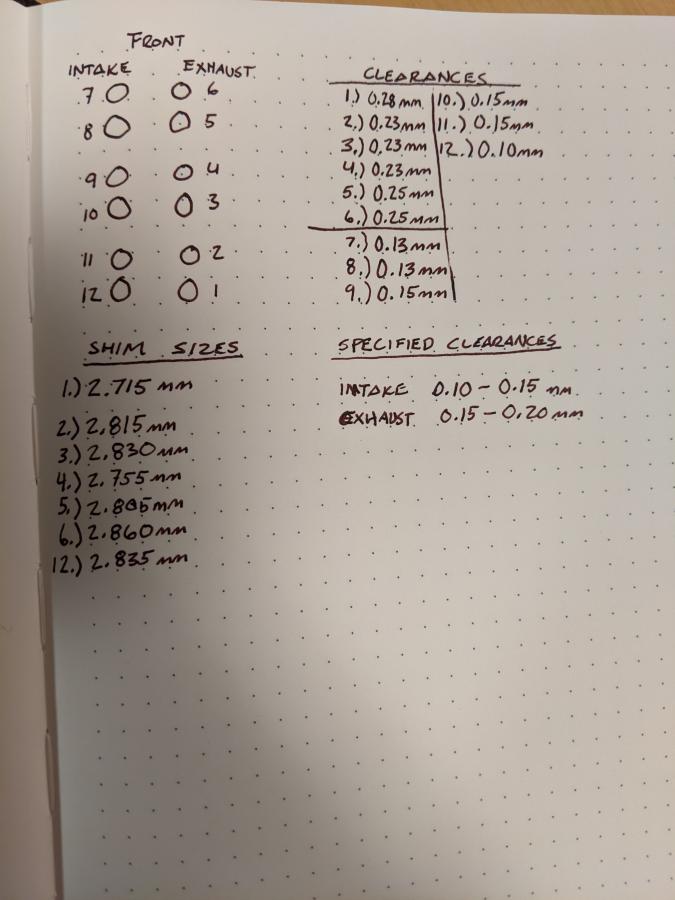 FRONT
INTAKE EXHAUST
7 6
8 5
9 4
10 3
11 2
12 1
CLEARANCES
1.) 0.28mm 10.) 0.15mm
2.) 0.23mm 11.) 0.15mm
3.) 0.23mm 12.) 0.10mm
4.) 0.23mm
5.) 0.25mm
6.) 0.25mm
7.) 0.13mm
8.) 0.13mm
9.) 0.15mm
SHIM SIZES
1.) 2.715 mm
2.) 2.815mm
3.) 2.830mm
4.) 2.755mm
5.)
6.) 2.860mm
12.) 2.835 mm
SPECIFIED CLEARANCES
INTAKE 0.10 - 0.15 mm
EXHAUST 0.15 - 0.20 mm